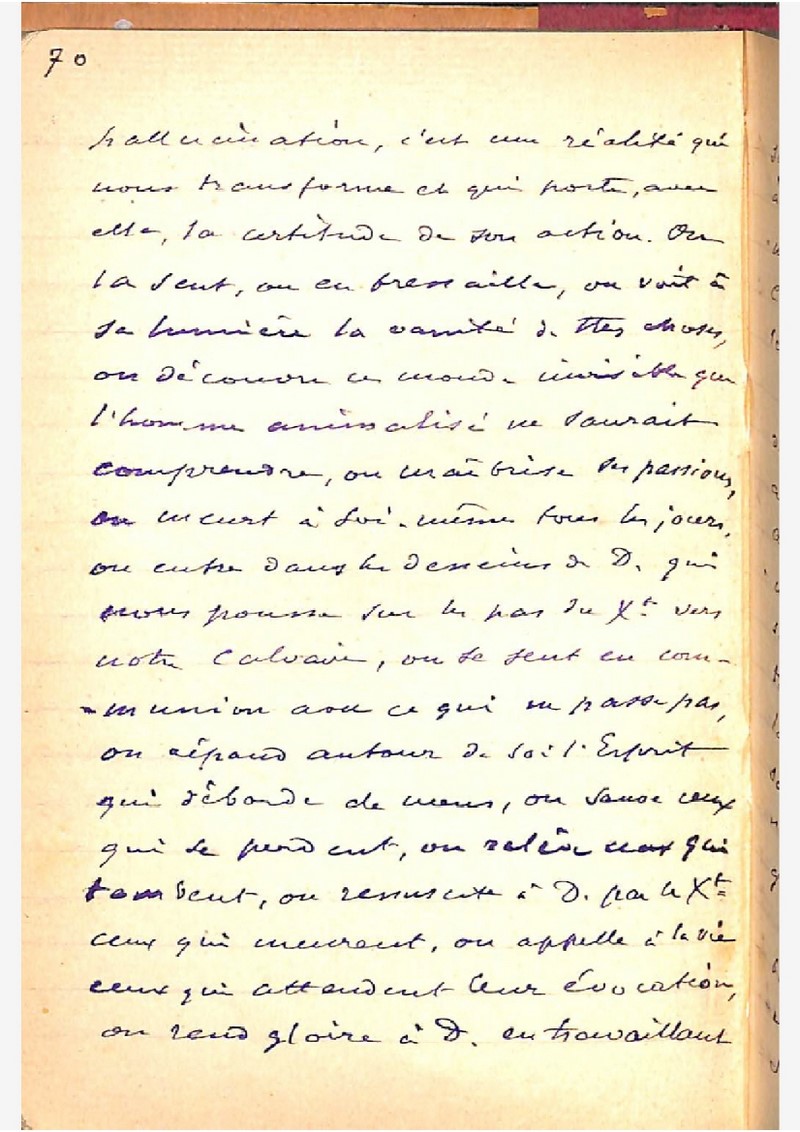 70
hallucination, c'est une réalité qui
nous transforme et qui porte, avec
elle, la certitude de son action. On
la sent, on en tressaille, on voit à
sa lumière la vanité d. ttes choses,
on découvre ce monde invisible que
l'homme animalisé ne saurait
comprendre, on maîtrise ses passions,
on meurt à soi-même tous les jours,
on entre dans les desseins de D. qui
nous pousse sur les pas du Xt vers
notre Calvaire, on se sent en com-
-munion avec ce qui ne passe pas,
on répand autour de soi l'Esprit
qui déborde de nous, on sauve ceux
qui se perdent, on relève ceux qui
tombent, on ressuscite à D. par le Xt
ceux qui meurent, on appelle à la vie
ceux qui attendent leur évocation,
on rend gloire à D. en travaillant